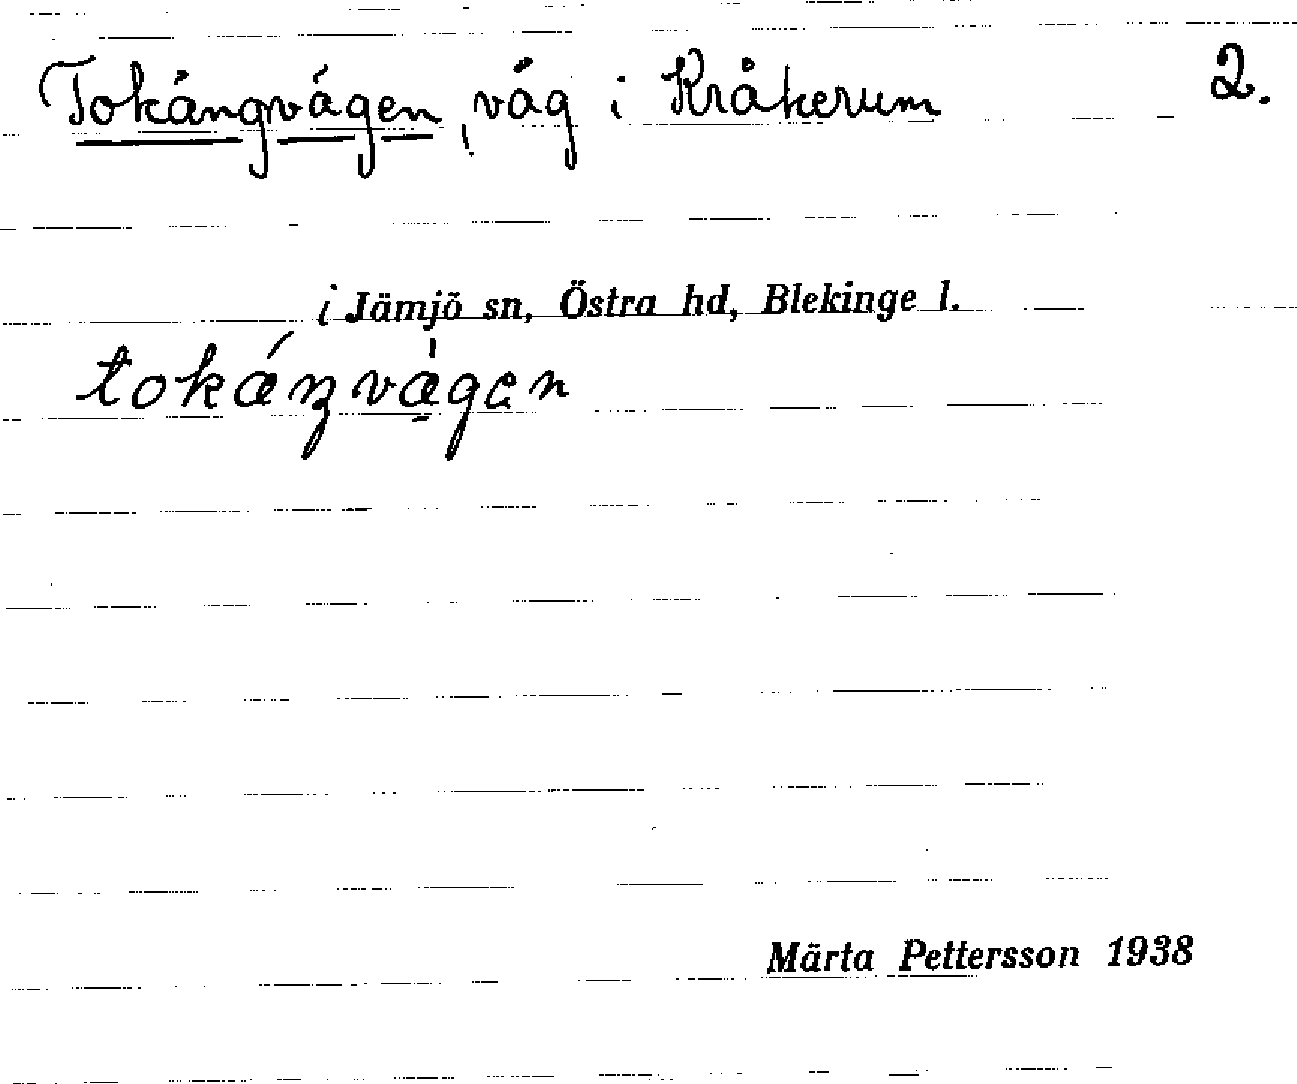 Tokängvägen, väg i Kråkerum 2.
i Jämjö sn, Östra hd, Blekinge l.
tokáŋvá̱gen
Märta Pettersson 1938